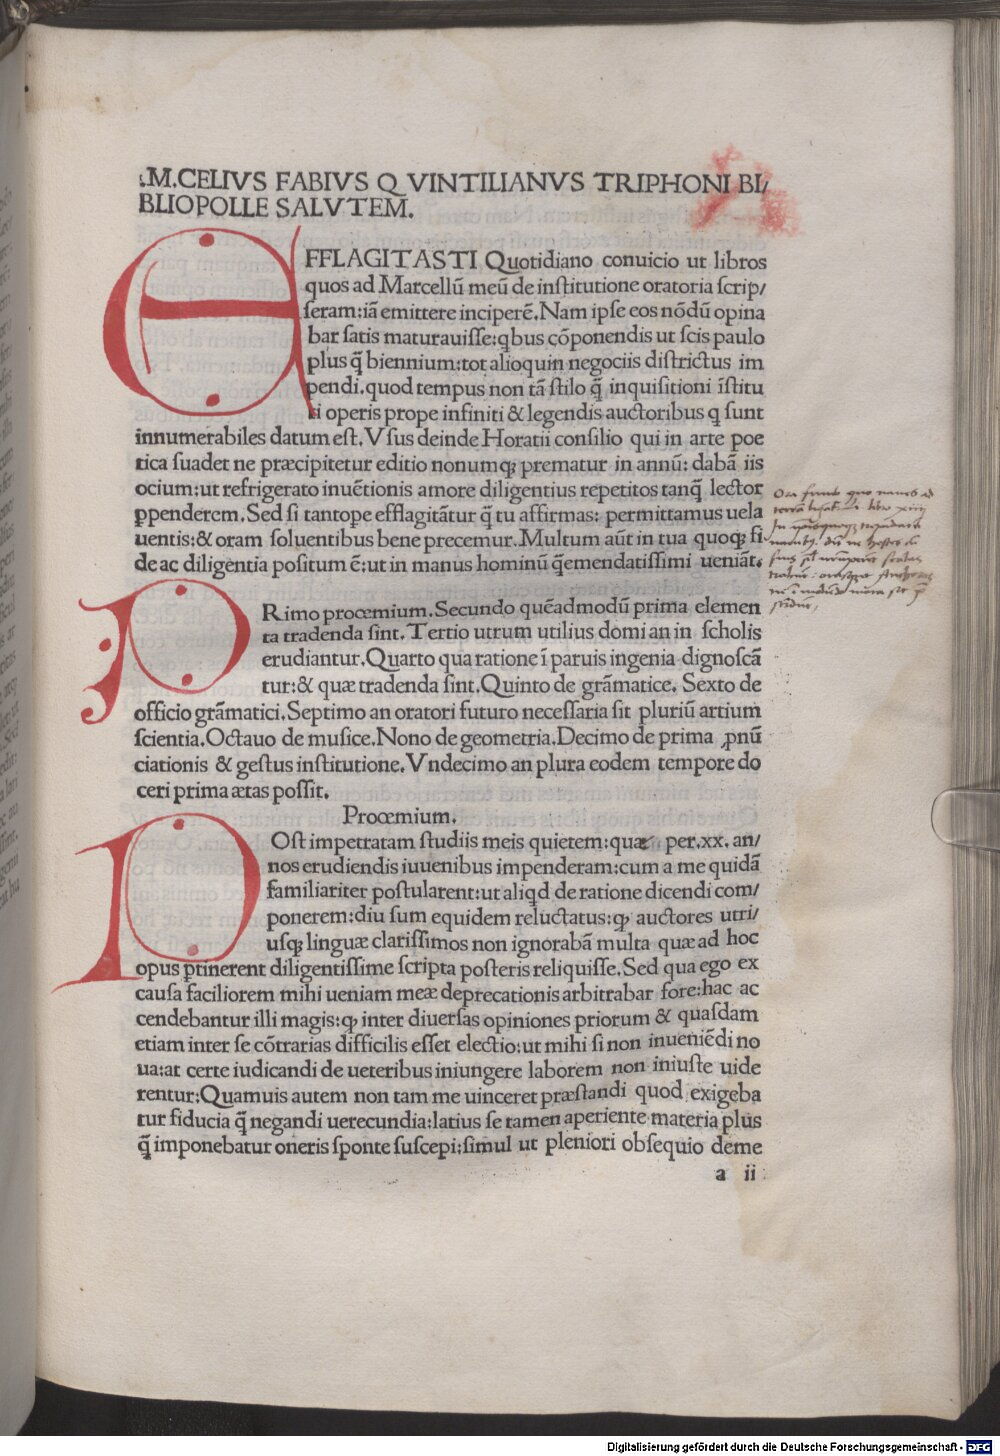 .M.CELIVS FABIVS Q VINTILIANVS TRIPHONI BI/
BLIOPOLLE SALVTEM.
EFFLAGITASTI Quotidiano conuicio ut libros
quos ad Marcellũ meũ de inſtitutione oratoria ſcrip/
ſeram:iã emittere inciperẽ.Nam ipſe eos nõdũ opina
bar ſatis maturauiſſe:qbus cõponendis ut ſcis paulo
plus q̃ biennium:tot alioquin negociis diſtrictus im
pendi.quod tempus non tã ſtilo q̃ inquiſitioni ĩſtitu
ti operis prope infiniti & legendis auctoribus q ſunt
innumerabiles datum eſt.Vſus deinde Horatii conſilio qui in arte poe
tica ſuadet ne præcipitetur editio nonumqꝫ prematur in annũ: dabã iis
ocium:ut refrigerato inuẽtionis amore diligentius repetitos tanq̃ lector
ꝑpenderem.Sed ſi tantope efflagitãtur q̃ tu affirmas: permittamus uela
uentis:& oram ſoluentibus bene precemur.Multum aũt in tua quoqꝫ fi
de ac diligentia poſitum ẽ:ut in manus hominũ q̃emendatiſſimi ueniãt.
PRimo procœmium.Secundo quẽadmodũ prima elemen
ta tradenda ſint.Tertio utrum utilius domi an in ſcholis
erudiantur.Quarto qua ratione ĩ paruis ingenia dignoſcã
tur:& quæ tradenda ſint.Quinto de grãmatice. Sexto de
officio grãmatici.Septimo an oratori futuro neceſſaria ſit pluriũ artium
ſcientia.Octauo de muſice.Nono de geometria.Decimo de prima ꝓnũ
ciationis & geſtus inſtitutione.Vndecimo an plura eodem tempore do
ceri prima ætas poſſit.
Procœmium.
POſt impetratam ſtudiis meis quietem:quæ per.xx.an/
nos erudiendis iuuenibus impenderam:cum a me quidã
familiariter poſtularent:ut aliqd de ratione dicendi com/
ponerem:diu ſum equidem reluctatus:ꝙ auctores utri/
uſqꝫ linguæ clariſſimos non ignorabã multa quæ ad hoc
opus ꝑtinerent diligentiſſime ſcripta poſteris reliquiſſe.Sed qua ego ex
cauſa faciliorem mihi ueniam meæ deprecationis arbitrabar fore:hac ac
cendebantur illi magis:ꝙ inter diuerſas opiniones priorum & quaſdam
etiam inter ſe cõtrarias difficilis eſſet electio:ut mihi ſi non inueniẽdi no
ua:at certe iudicandi de ueteribus iniungere laborem non iniuſte uide
rentur:Quamuis autem non tam me uinceret præſtandi quod exigeba
tur fiducia q̃ negandi uerecundia:latius ſe tamen aperiente materia plus
q̃ imponebatur oneris ſponte ſuſcepi:ſimul ut pleniori obſequio deme
a ii
Digitalisierung gefördert durch die Deutsche Forschungsgemeinschaft - DFG